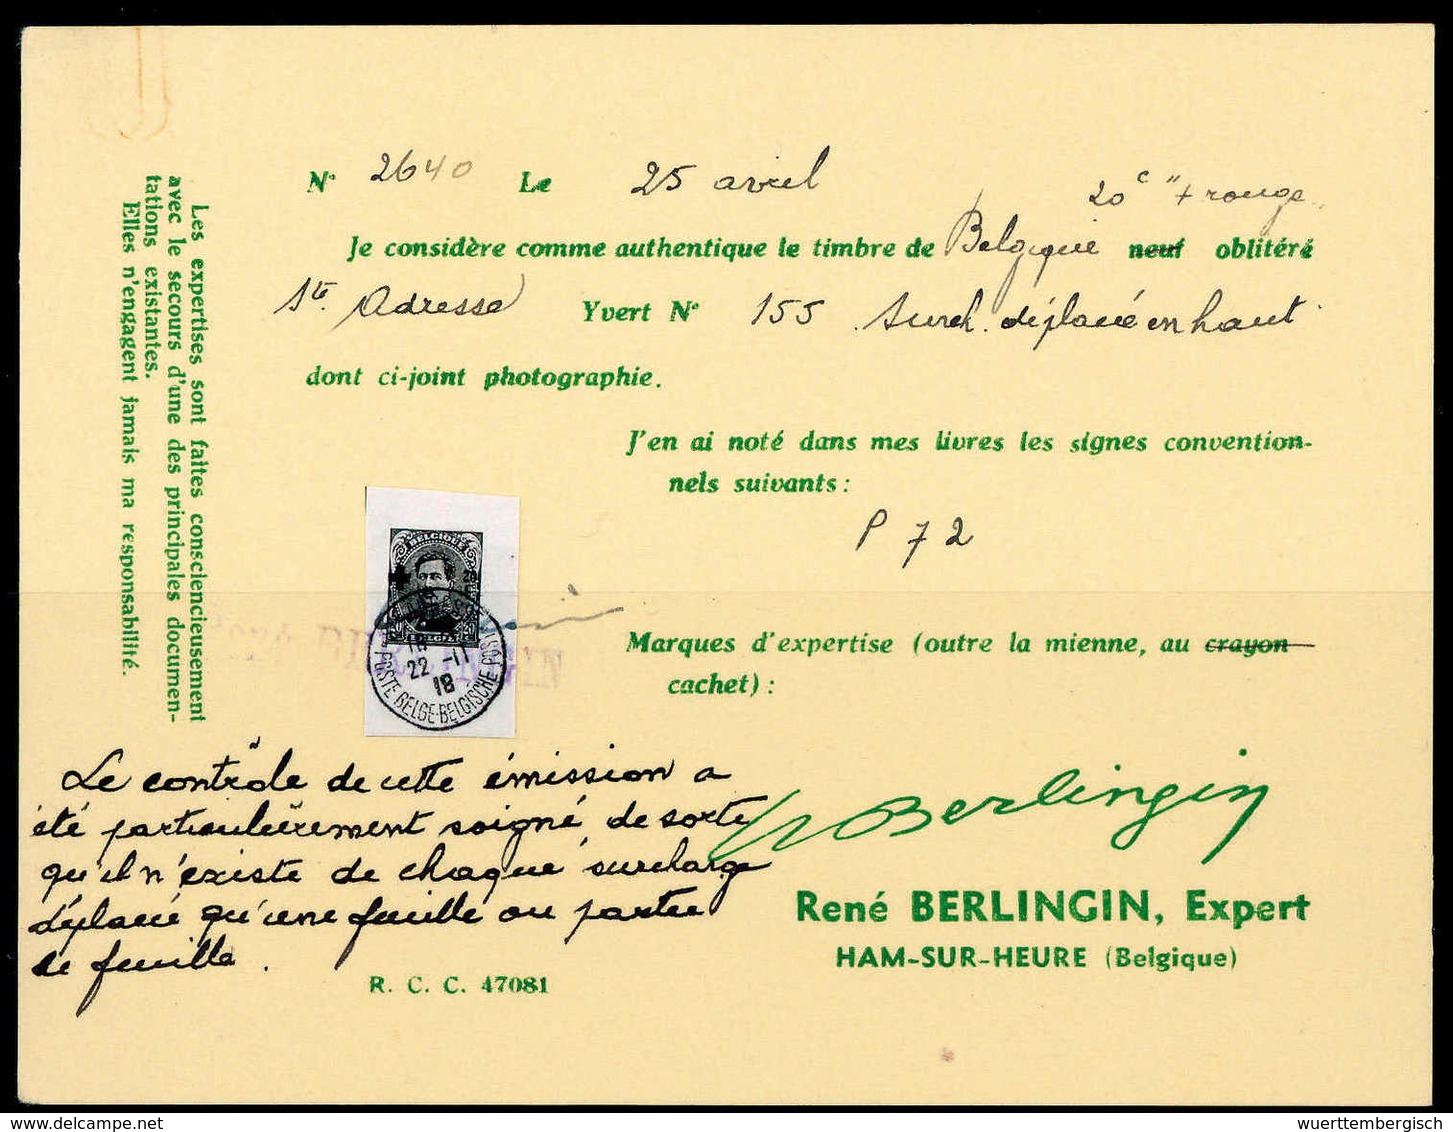 Nº 2640 Le 25 avril
20c "+ rouge"
Je considère comme authentique le timbre de Belgique neuf oblitéré
Ste Adresse Yvert Nº 155 Surch. déplacé en haut
dont ci-joint photographie.
J'en ai noté dans mes livres les signes convention-
nels suivants :
P 72
Marques d'expertise (outre la mienne, au crayon
cachet) :
Les expertises sont faites consciencieusement
avec le secours d'une des principales documen-
tations existantes.
Elles n'engagent jamais ma responsabilité.
BELGIQUE
20
18
22 -11
18
POSTE BELGE-BELGISCHE POST
Le contrôle de cette émission a
été particulièrement soigné, de sorte
qu'il n'existe de chaque surcharge
déplacée qu'une feuille ou partie
de feuille.
Berlingin
René BERLINGIN, Expert
HAM-SUR-HEURE (Belgique)
R. C. C. 47081
wuerttembergisch